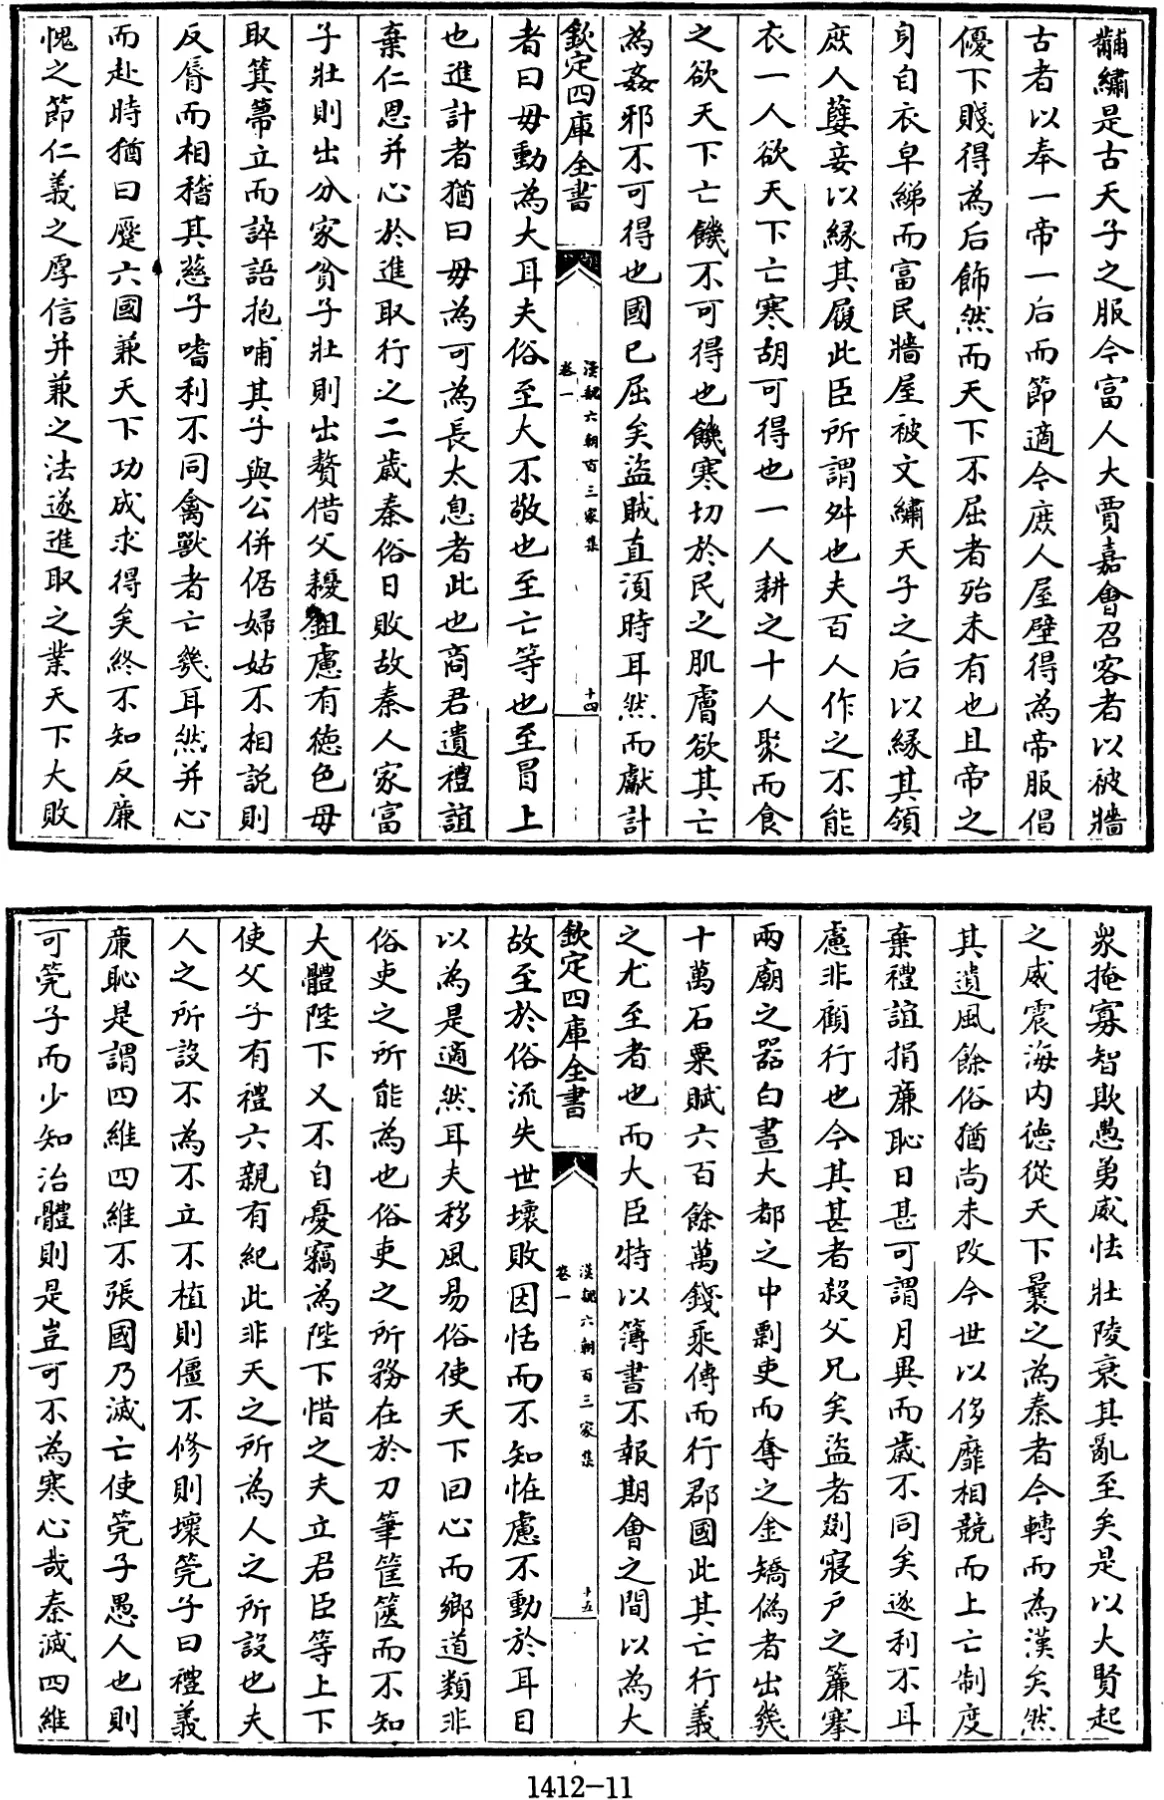 黼繡是古天子之服今富人大賈嘉會召客者以被牆
古者以奉一帝一后而節適今庶人屋壁得為帝服倡
優下賤得為后飾然而天下不屈者殆未有也且帝之
身自衣皁綈而富民牆屋被文繡天子之后以緣其領
庶人孽妾以緣其履此臣所謂舛也夫百人作之不能
衣一人欲天下亡寒胡可得也一人耕之十人聚而食
之欲天下亡饑不可得也饑寒切於民之肌膚欲其亡
為姦邪不可得也國已屈矣盜賊直須時耳然而獻計
欽定四庫全書
漢魏六朝百三家集
卷一
十四
者曰毋動為大耳夫俗至大不敬也至亡等也至冒上
也進計者猶曰毋為可為長太息者此也商君遺禮誼
棄仁恩并心於進取行之二歲秦俗日敗故秦人家富
子壯則出分家貧子壯則出贅借父耰鉏慮有德色母
取箕箒立而誶語抱哺其子與公併倨婦姑不相說則
反脣而相稽其慈子嗜利不同禽獸者亡幾耳然并心
而赴時猶曰蹷六國兼天下功成求得矣終不知反廉
愧之節仁義之厚信并兼之法遂進取之業天下大敗
衆掩寡智欺愚勇威怯壯陵衰其亂至矣是以大賢起
之威震海内德從天下曩之為秦者今轉而為漢矣然
其遺風餘俗猶尚未改今世以侈靡相競而上亡制度
棄禮誼捐廉恥日甚可謂月異而歲不同矣遂利不耳
慮非顧行也今其甚者殺父兄矣盜者剟寢戶之簾搴
兩廟之器白晝大都之中剽吏而奪之金矯偽者出幾
十萬石粟賦六百餘萬錢乘傳而行郡國此其亡行義
之尤至者也而大臣特以簿書不報期會之間以為大
欽定四庫全書
漢魏六朝百三家集
卷一
十五
故至於俗流失世壞敗因恬而不知怪慮不動於耳目
以為是適然耳夫移風易俗使天下回心而鄉道類非
俗吏之所能為也俗吏之所務在於刀筆筐篋而不知
大體陛下又不自憂竊為陛下惜之夫立君臣等上下
使父子有禮六親有紀此非天之所為人之所設也夫
人之所設不為不立不植則僵不修則壞筦子曰禮義
廉恥是謂四維四維不張國乃滅亡使筦子愚人也則
可筦子而少知治體則是豈可不為寒心哉秦滅四維
1412-11